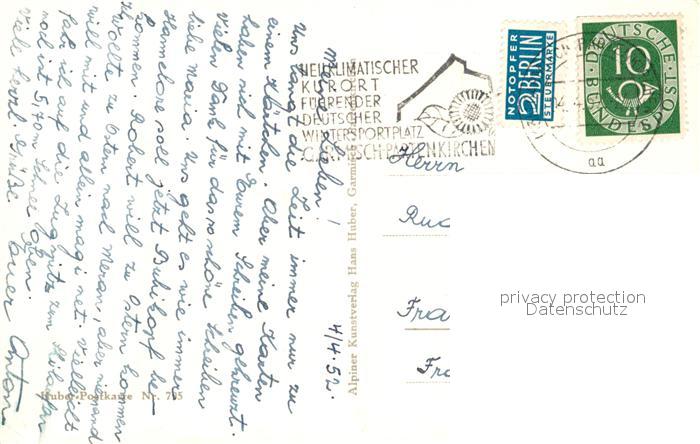 Meine Lieben!
4/4.52.
Uns langt die Zeit immer nur zu
einem Kärtchen. Aber meine Karten
haben sich mit Eurem Schreiben gekreuzt.
Vielen Dank für das so schöne Schreiben
liebe Maria. Uns geht es wie immer.
Hannelore soll jetzt Bubikopf be-
kommen. Robert will zu Ostern kommen
Wollte zu Ostern nach Meran, aber niemand
will mit und allein mag i net. Vielleicht
fahr ich auf die Zugspitze zum Skilaufen
noch ist 5,70 m Schnee oben.
Viele herzl. Grüße Euer Anton
Huber-Postkarte Nr. 795
Alpiner Kunstverlag Hans Huber, Garmisch
HEILKLIMATISCHER
KURORT
FÜHRENDER
DEUTSCHER
WINTERSPORTPLATZ
GARMISCH-PARTENKIRCHEN
NOTOPFER
2 BERLIN
STEUERMARKE
DEUTSCHE
BUNDESPOST
10
aa
Herrn
Ruc
Fra
Fr
privacy protection
Datenschutz